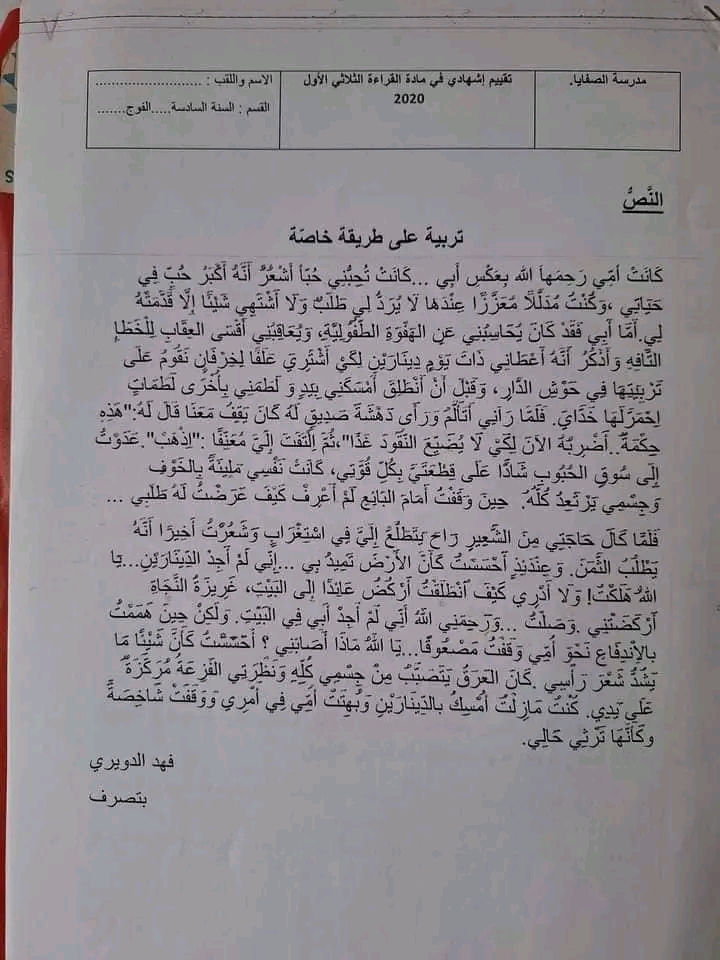 مدرسة الصفايا.
تقييم إشهادي في مادة القراءة الثلاثي الأول
2020
الاسم واللقب : ..........................
القسم : السنة السادسة.....الفوج.......
النَّصُّ
تربية على طريقة خاصّة
كَانَتْ أُمِّي رَحِمَهاَ الله بِعَكْسِ أَبِي ...كَانَتْ تُحِبُّنِي حُبّاً أَشْعُرُ أَنَّهُ أَكْبَرُ حُبٍّ فِي
حَيَاتِي ،وَكُنْتُ مُدَلَّلاً مُعَزَّزًا عِنْدَهَا لَا يُرَدُّ لِي طَلَبٌ وَلَا أَشْتَهِي شَيْئًا إِلَّا قَدَّمَتْهُ
لِي.أَمَّا أَبِي فَقَدْ كَانَ يُحَاسِبُنِي عَنِ الهَفْوَةِ الطُّفُولِيَّةِ، وَيُعَاقِبُنِي أَقْسَى العِقَابِ لِلْخَطَإِ
التَّافِهِ وَأَذْكُرُ أَنَّهُ أَعْطَانِي ذَاتَ يَوْمٍ دِينَارَيْنِ لِكَيْ أَشْتَرِيَ عَلَفًا لِخِرْفَانٍ نَقُومُ عَلَى
تَرْبِيَتِهَا فِي حَوْشِ الدَّارِ، وَقَبْلَ أَنْ أَنْطَلِقَ أَمْسَكَنِي بِيَدٍ وَ لَطَمَنِي بِأُخْرَى لَطَمَاتٍ
اِحْمَرَّلَهَا خَدَّايَ. فَلَمَّا رَآنِي أَتَأَلَّمُ وَرَأَى دَهْشَةَ صَدِيقٍ لَهُ كَانَ يَقِفُ مَعَنَا قَالَ لَهُ:"هَذِهِ
حِكْمَةٌ..أَضْرِبُهُ الآنَ لِكَيْ لَا يُضَيِّعَ النُّقُودَ غَدًا"،ثُمَّ اِلْتَفَتَ إِلَيَّ مُعَنِّفًا :"اِذْهَبْ".عَدَوْتُ
إِلَى سُوقِ الحُبُوبِ شَادًّا عَلَى قِطْعَتَيَّ بِكُلِّ قُوَّتِي، كَانَتْ نَفْسِي مَلِيئَةً بِالخَوْفِ
وَجِسْمِي يَرْتَعِدُ كُلُّهُ. حِينَ وَقَفْتُ أَمَامَ البَائِعِ لَمْ أَعْرِفْ كَيْفَ عَرَضْتُ لَهُ طَلَبِي ...
فَلَمَّا كَالَ حَاجَتِي مِنَ الشَّعِيرِ رَاحَ يَتَطَلَّعُ إِلَيَّ فِي اسْتِغْرَابٍ وَشَعُرْتُ أَخِيرًا أَنَّهُ
يَطْلُبُ الثَّمَنَ. وَعِنْدَئِذٍ أَحْسَسْتُ كَأَنَّ الأَرْضَ تَمِيدُ بِي ...إِنِّي لَمْ أَجِدْ الدِّينَارَيْنِ...يَا
اللهُ هَلَكْتُ! وَلَا أَدْرِي كَيْفَ انْطَلَقْتُ أَرْكُضُ عَائِدًا إِلَى البَيْتِ، غَرِيزَةُ النَّجَاةِ
أَرْكَضَتْنِي .وَصَلْتُ ...وَرَحِمَنِي اللهُ أَنِّي لَمْ أَجِدْ أَبِي فِي البَيْتِ. وَلَكِنْ حِينَ هَمَمْتُ
بِالاِنْدِفَاعِ نَحْوَ أُمِّي وَقَفْتُ مَصْعُوقًا...يَا اللهُ مَاذَا أَصَابَنِي ؟ أَحْسَسْتُ كَأَنَّ شَيْئًا مَا
يَشُدُّ شَعْرَ رَأْسِي .كَانَ العَرَقُ يَتَصَبَّبُ مِنْ جِسْمِي كُلِّهِ وَنَظْرَتِي الفَزِعَةُ مُرَكَّزَةٌ
عَلَى يَدِي. كُنْتُ مَازِلْتُ أُمْسِكُ بِالدِّينَارَيْنِ وَبُهِتَتْ أُمِّي فِي أَمْرِي وَوَقَفَتْ شَاخِصَةً
وكَأَنَّهَا تَرْثِي حَالِي.
فهد الدويري
بتصرف